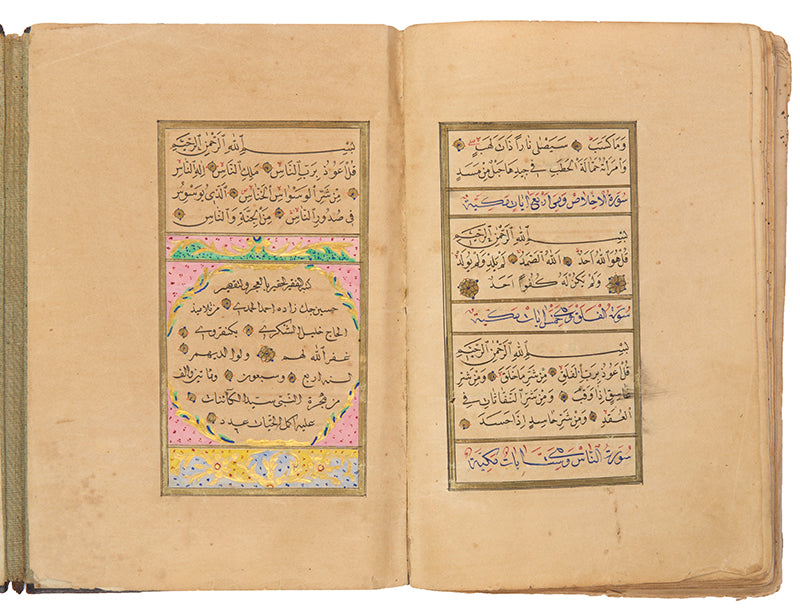 وَمَا كَسَبَ سَيَصْلَى نَاراً ذَاتَ لَهَبٍ
وَامْرَأَتُهُ حَمَّالَةَ الْحَطَبِ فِي جِيدِهَا حَبْلٌ مِنْ مَسَدٍ
سورة الاخلاص وهي اربع ايات مكية
بِسْمِ اللهِ الرَّحْمٰنِ الرَّحِيمِ
قُلْ هُوَ اللهُ اَحَدٌ اَللهُ الصَّمَدُ لَمْ يَلِدْ وَلَمْ يُولَدْ
وَلَمْ يَكُنْ لَهُ كُفُواً اَحَدٌ
سورة الفلق وهي خمس ايات مكية
بِسْمِ اللهِ الرَّحْمٰنِ الرَّحِيمِ
قُلْ اَعُوذُ بِرَبِّ الْفَلَقِ مِنْ شَرِّ مَا خَلَقَ وَمِنْ شَرِّ
غَاسِقٍ اِذَا وَقَبَ وَمِنْ شَرِّ النَّفَّاثَاتِ فِي
الْعُقَدِ وَمِنْ شَرِّ حَاسِدٍ اِذَا حَسَدَ
سورة الناس وهي ست ايات مكية
بِسْمِ اللهِ الرَّحْمٰنِ الرَّحِيمِ
قُلْ اَعُوذُ بِرَبِّ النَّاسِ مَلِكِ النَّاسِ اِلٰهِ النَّاسِ
مِنْ شَرِّ الْوَسْوَاسِ الْخَنَّاسِ اَلَّذِي يُوَسْوِسُ
فِي صُدُورِ النَّاسِ مِنَ الْجِنَّةِ وَالنَّاسِ
كتبه الفقير الحقير بالعجز والتقصير
حسين زاده احمد الحمدي من تلاميذ
الحاج خليل الشكري
غفر الله لهم ولوالديهم
سنه اربع وسبعون ومائتين والف
من هجرة النبي سيد الكائنات
عليه اكمل التحيات